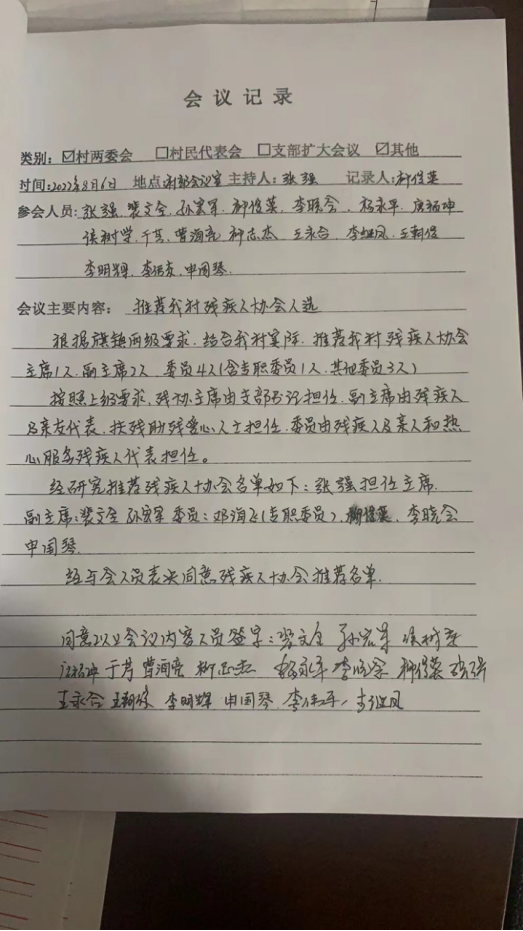 会议记录
类别：☑村两委会 ☐村民代表会 ☐支部扩大会议 ☑其他
时间：2022年8月6日 地点：村部会议室 主持人：张强 记录人：柳俊英
参会人员：张强 裴文全 孙宏军 柳俊英 李晓会 杨永军 庞福坤
侯树学 于芳 曹海亮 柳志杰 王永合 李继凤 王朝俊
李明辉 申国琴
会议主要内容：推荐我村残疾人协会人选
根据旗镇两级要求，结合我村实际，推荐我村残疾人协会
主席1人，副主席2人，委员4人（含专职委员1人，其他委员3人）
按照上级要求，残协主席由支部书记担任，副主席由残疾人
及亲友代表，扶残助残爱心人士担任，委员由残疾人及亲人和热
心服务残疾人代表担任。
经研究推荐残疾人协会名单如下：张强担任主席
副主席：裴文全 孙宏军 委员：邓海飞（专职委员），柳俊英，李晓会
申国琴
经与会人员表决同意残疾人协会推荐名单
同意以上会议内容人员签字：裴文全 孙宏军 侯树学
庞福坤 于芳 曹海亮 柳志杰 杨永军 李晓会 柳俊英 张强
王永合 王朝俊 李明辉 申国琴 李继凤